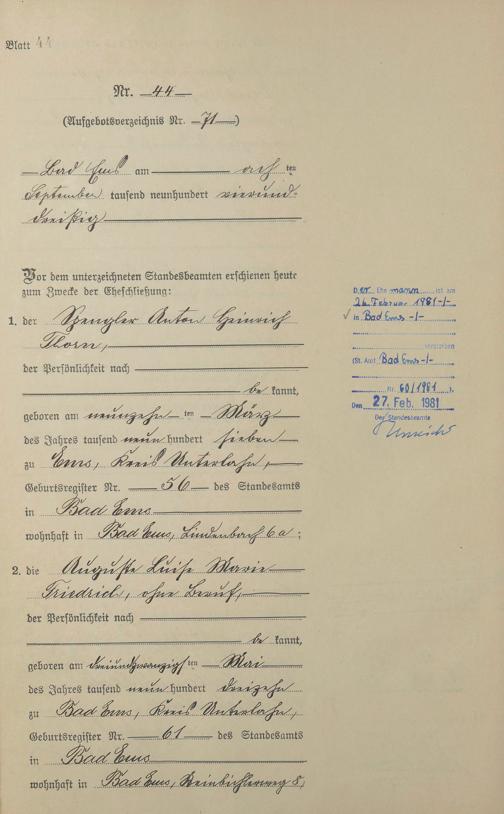 Blatt 44
Nr. 44
(Aufgebotsverzeichnis Nr. 71)
Bad Ems am acht ten
September tausend neunhundert vierund-
dreißig
Vor dem unterzeichneten Standesbeamten erschienen heute
zum Zwecke der Eheschließung:
1. der Spengler Anton Heinrich
Thorn,
der Persönlichkeit nach
be kannt,
geboren am neunzehn ten März
des Jahres tausend neun hundert sieben
zu Ems, Kreis Unterlahn,
Geburtsregister Nr. 56 des Standesamts
in Bad Ems
wohnhaft in Bad Ems, Lindenbach 6a;
2. die Auguste Luise Marie
Friedrich, ohne Beruf,
der Persönlichkeit nach
be kannt,
geboren am dreiundzwanzigs ten Mai
des Jahres tausend neun hundert dreizehn
zu Bad Ems, Kreis Unterlahn,
Geburtsregister Nr. 61 des Standesamts
in Bad Ems
wohnhaft in Bad Ems,
Der Ehemann ist am
26. Februar 1981 -/-
in Bad Ems -/-
verstorben
(St. Amt Bad Ems -/-
Nr. 60/1981 ).
Den 27. Feb. 1981
Der Standesbeamte